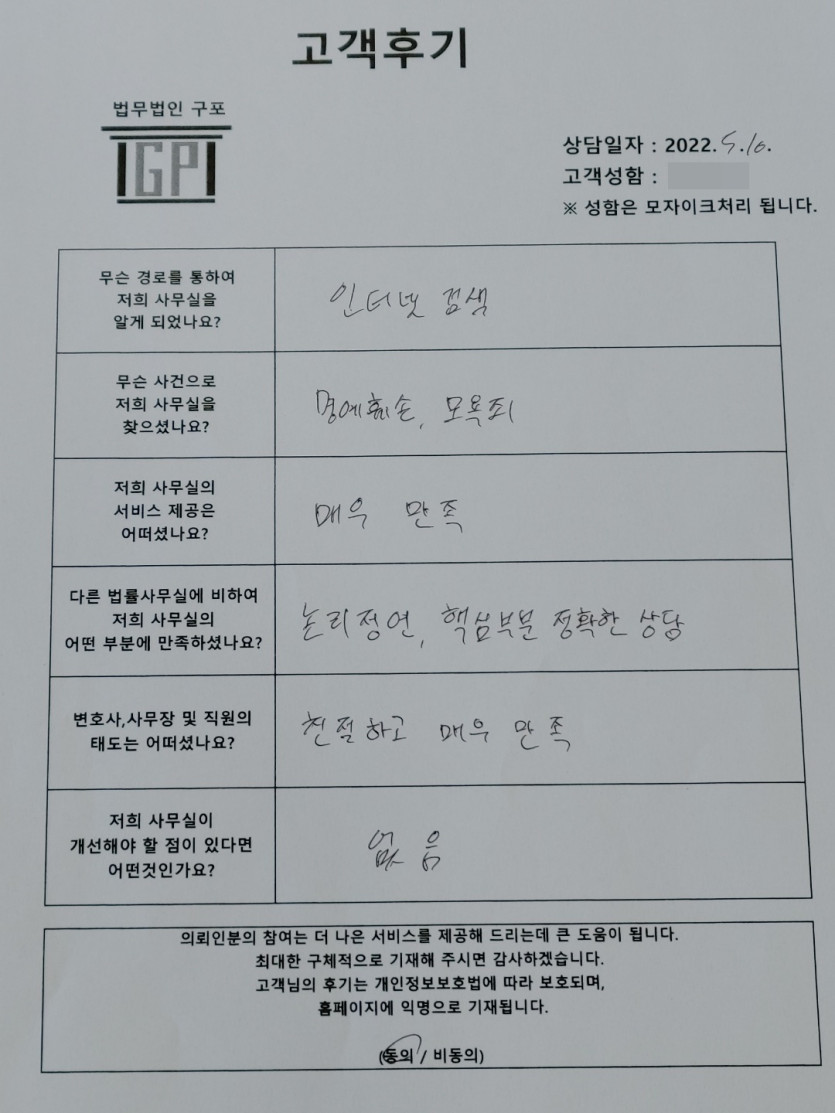 고객후기
법무법인 구포
GP
상담일자 : 2022. 5. 10.
고객성함 :
※ 성함은 모자이크처리 됩니다.
무슨 경로를 통하여
저희 사무실을
알게 되었나요?
인터넷 검색
무슨 사건으로
저희 사무실을
찾으셨나요?
명예훼손, 모욕죄
저희 사무실의
서비스 제공은
어떠셨나요?
매우 만족
다른 법률사무실에 비하여
저희 사무실의
어떤 부분에 만족하셨나요?
논리정연, 핵심부분 정확한 상담
변호사,사무장 및 직원의
태도는 어떠셨나요?
친절하고 매우 만족
저희 사무실이
개선해야 할 점이 있다면
어떤것인가요?
없음
의뢰인분의 참여는 더 나은 서비스를 제공해 드리는데 큰 도움이 됩니다.
최대한 구체적으로 기재해 주시면 감사하겠습니다.
고객님의 후기는 개인정보보호법에 따라 보호되며,
홈페이지에 익명으로 기재됩니다.
(동의 / 비동의)